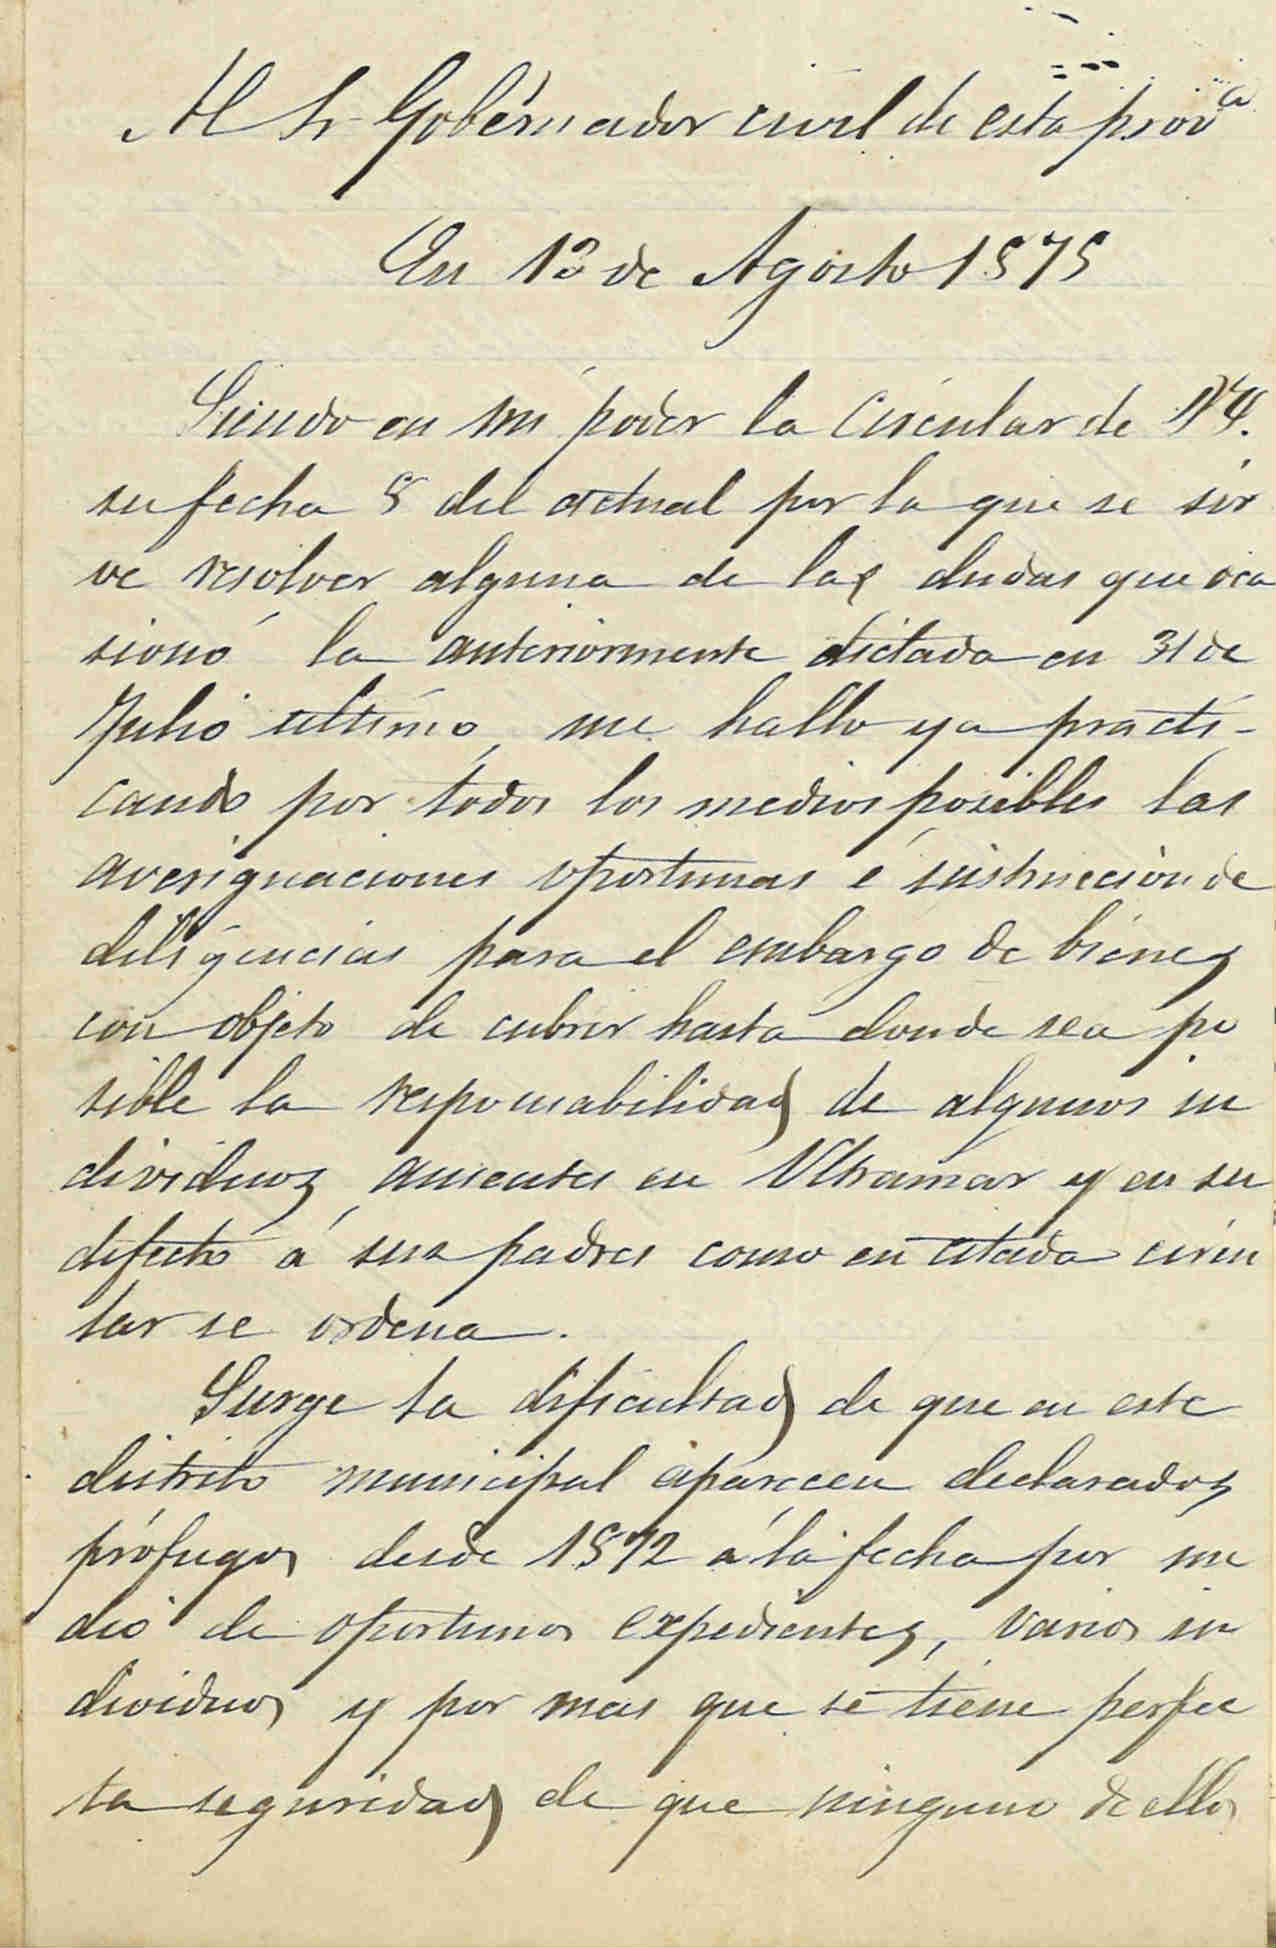 Al Sr Gobernador civil de esta prov.ª
En 13 de Agosto 1875
Siendo en mi poder la Circular de V.
su fecha 8 del actual por la que se sir
ve resolver alguna de las dudas que oca
sionó la anteriormente dictada en 31 de
Julio ultimo, me hallo ya practi-
cando por todos los medios posibles las
averiguaciones oportunas é instruccion de
diligencias para el embargo de bienes
con objeto de cubrir hasta donde sea po
sible la responsabilidad de algunos in
dividuos ausentes en Ultramar y en su
defecto á sus padres como en citada circu
lar se ordena.
Surge la dificultad de que en este
distrito municipal aparecen declarados
prófugos desde 1872 á la fecha por me
dio de oportunos expedientes, varios in
dividuos y por mas que se tiene perfec
ta seguridad de que ninguno de ellos